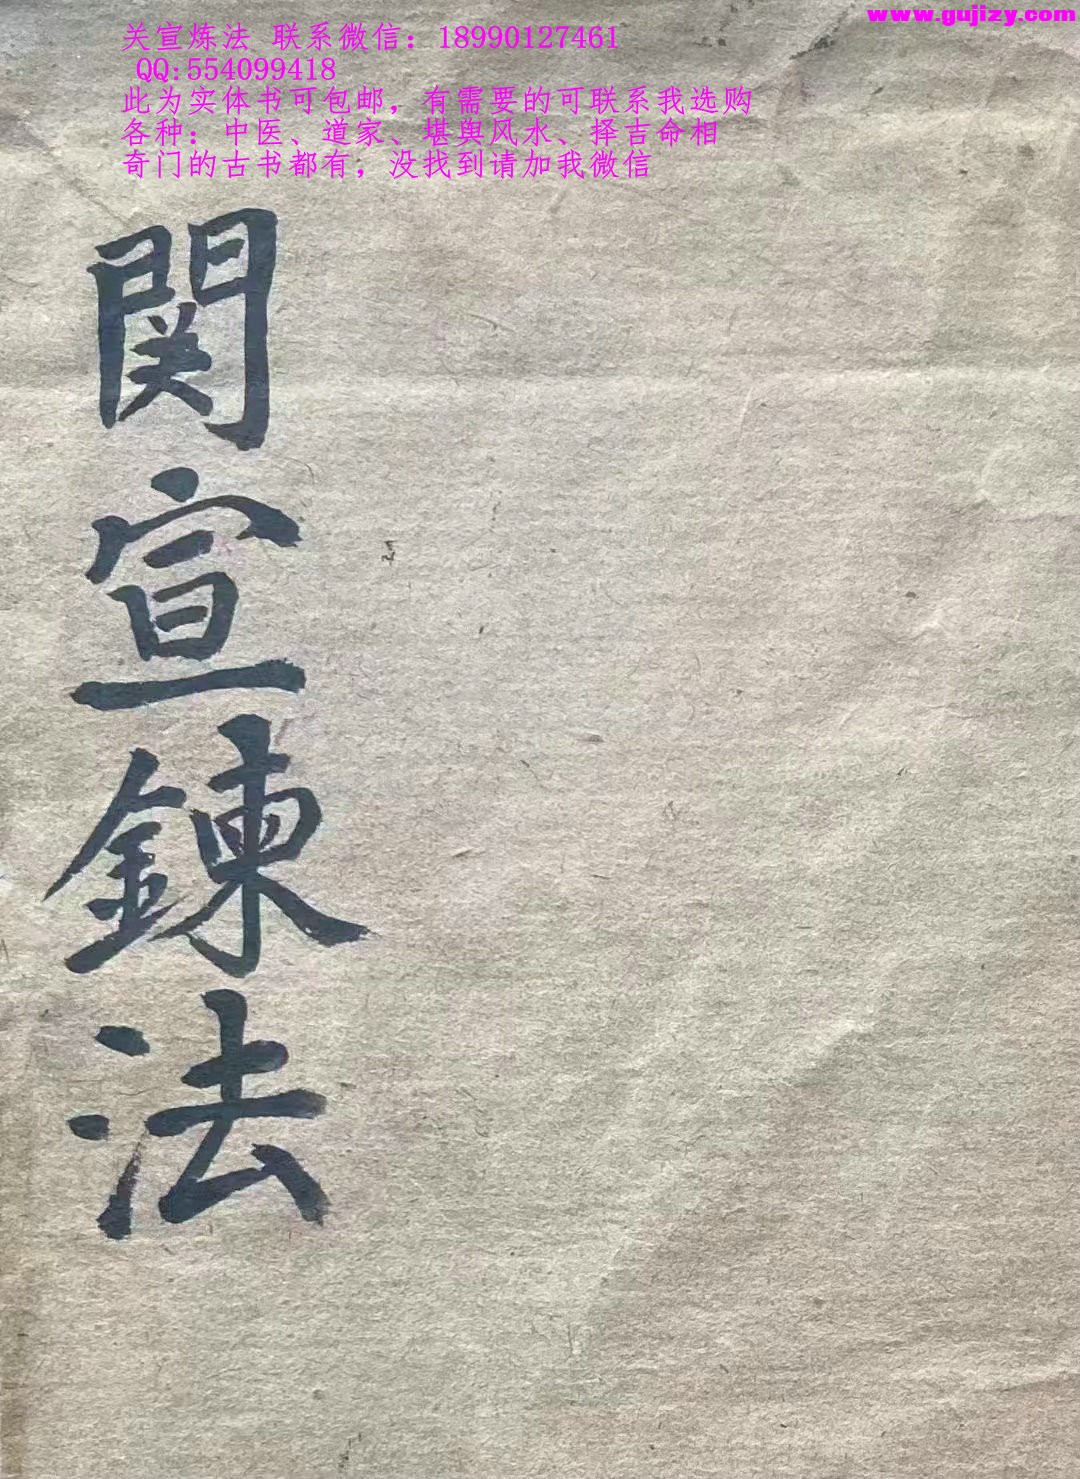 www.gujizy.com
关宣炼法 联系微信：18990127461
QQ:554099418
此为实体书可包邮，有需要的可联系我选购
各种：中医、道家、堪舆风水、择吉命相
奇门的古书都有，没找到请加我微信
関宣鍊法